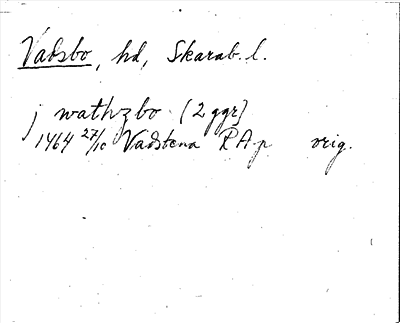 Vadsbo, hd, Skarab. l.
j wathzbo (2 ggr)
1464 27/10 Vadstena RA-p orig.